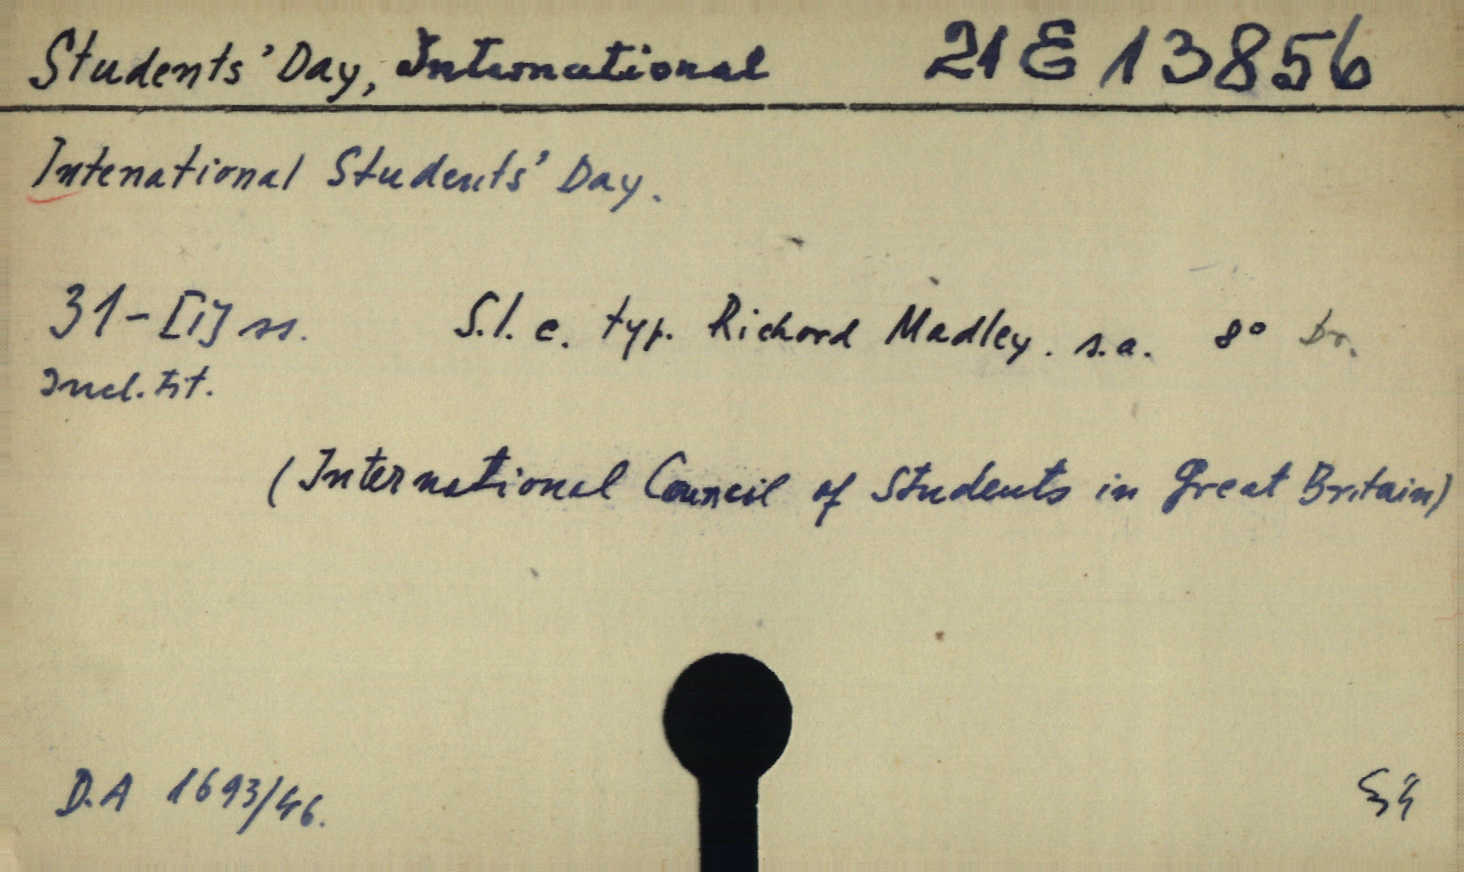 Students' Day, International 21 E 13856
Intenational Students' Day.
31-[1] ss. S.l. e. typ. Richard Madley. s.a. 8° br.
Incl. tit.
(International Council of Students in Great Britain)
D.A 1693/46.